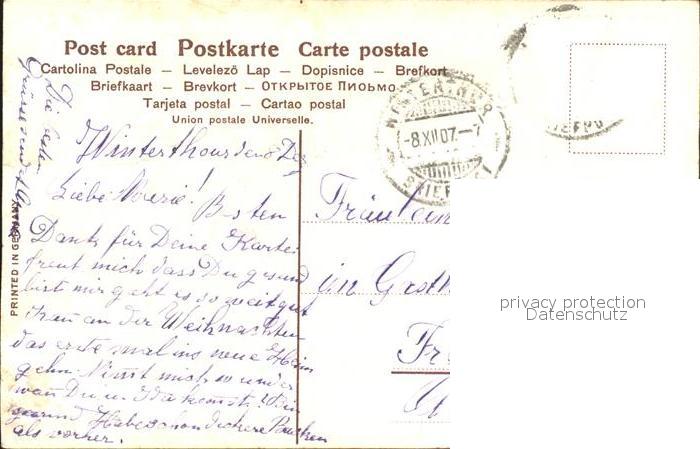 Post card Postkarte Carte postale
Cartolina Postale – Levelező Lap – Dopisnice – Brefkort
Briefkaart – Brevkort – ОТКРЫТОЕ ПИСЬМО
Tarjeta postal – Cartao postal
Union postale Universelle.
-8.XII.07.-7
PRINTED IN GERMANY
Die besten
Winterthour den 8 Dez
Liebe
Besten
Dank für Deine Karte
freut mich dass Du gesund
bist mir geht es so weit gut
an der Weihnachten
das erste mal ins neue Heim
gehn. Nimt mich wunder
wan Du
Habe schon dickere Backen
als vorher.
Fräulein
in
Fr
privacy protection
Datenschutz